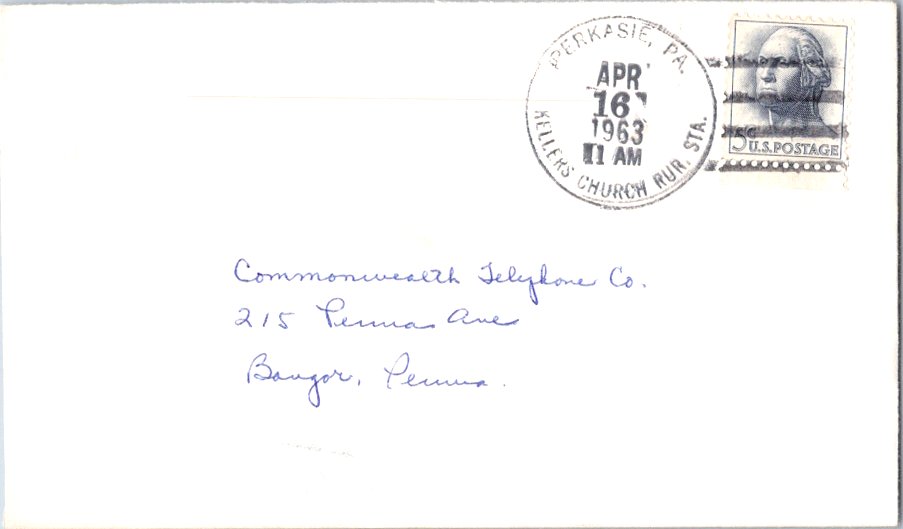 PERKASIE, PA.
APR
16
1963
11 AM
KELLERS CHURCH RUR. STA.
5¢ U.S. POSTAGE
Commonwealth Telephone Co.
215 Penna Ave
Bangor, Penna.